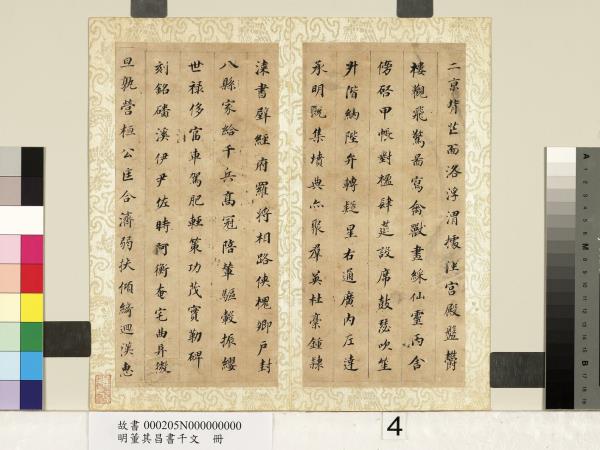 二京背芒面洛浮渭據涇宮殿盤鬱
樓觀飛驚啚寫禽獸畫綵仙靈丙舍
傍啓甲帳對楹肆筵設席鼓瑟吹笙
升階納陛弁轉疑星右通廣內左達
承明既集墳典亦聚羣英杜稾鍾隸
漆書壁經府羅將相路俠槐卿戶封
八縣家給千兵高冠陪輦驅轂振纓
世祿侈富車駕肥輕策功茂實勒碑
刻銘磻溪伊尹佐時阿衡奄宅曲阜微
旦孰營桓公匡合濟弱扶傾綺迴漢惠
故書 000205N000000000
明董其昌書千文 冊
4